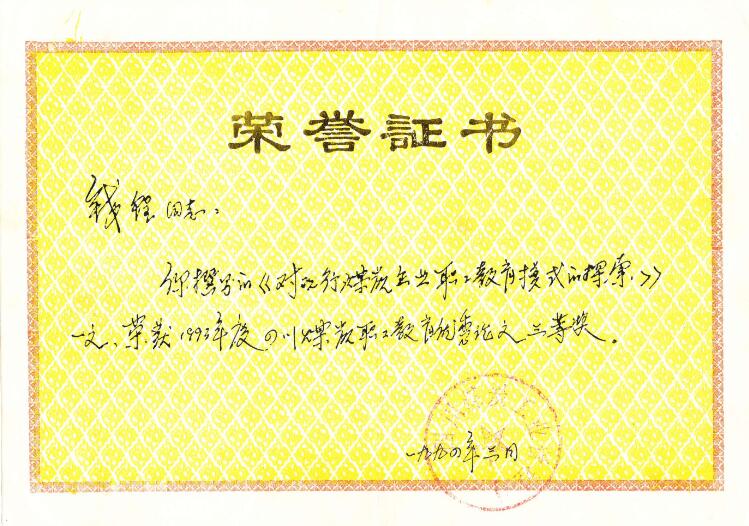 荣誉証书
钱程同志：
你撰写的《对现行煤炭企业职工教育模式的探索》
一文、荣获1993年度四川煤炭职工教育优秀论文三等奖。
一九九四年三月